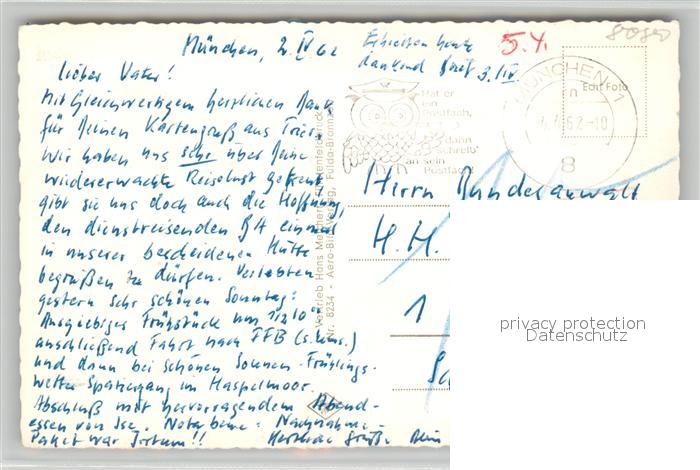 München, 2.IV.62
Erhielten heute
dankend Brief 3.IV
5.4.
8080
Lieber Vater!
Mit Gleichwertigem herzlichen Dank
für Deinen Kartengruß aus Trier.
Wir haben uns sehr über Deine
wiedererwachte Reiselust gefreut,
gibt sie uns doch auch die Hoffnung,
den dienstreisenden BA einmal
in unserer bescheidenen Hütte
begrüßen zu dürfen. Verlebten
gestern sehr schönen Sonntag:
Ausgiebiges Frühstück um 1/2 10
anschließend Fahrt nach FFB (s. ums.)
und dann bei schönem Sonnen-Frühlings-
wetter Spaziergang im Haspelmoor.
Abschluß mit hervorragendem Abend-
essen von Ise. Nota bene: Nachnahme-
Paket war Irrtum!! Herzliche Grüße Dein
Hat er
ein
Postfach,
dann
schreib'
an sein
Postfach
MÜNCHEN 1
62-10
8
Echt Foto
Vertrieb Hans
Nr. 8234 - Aero-Bild-Verlag, Fulda-Bronnzell
Herrn Bundesanwalt
H. H.
1
privacy protection
Datenschutz